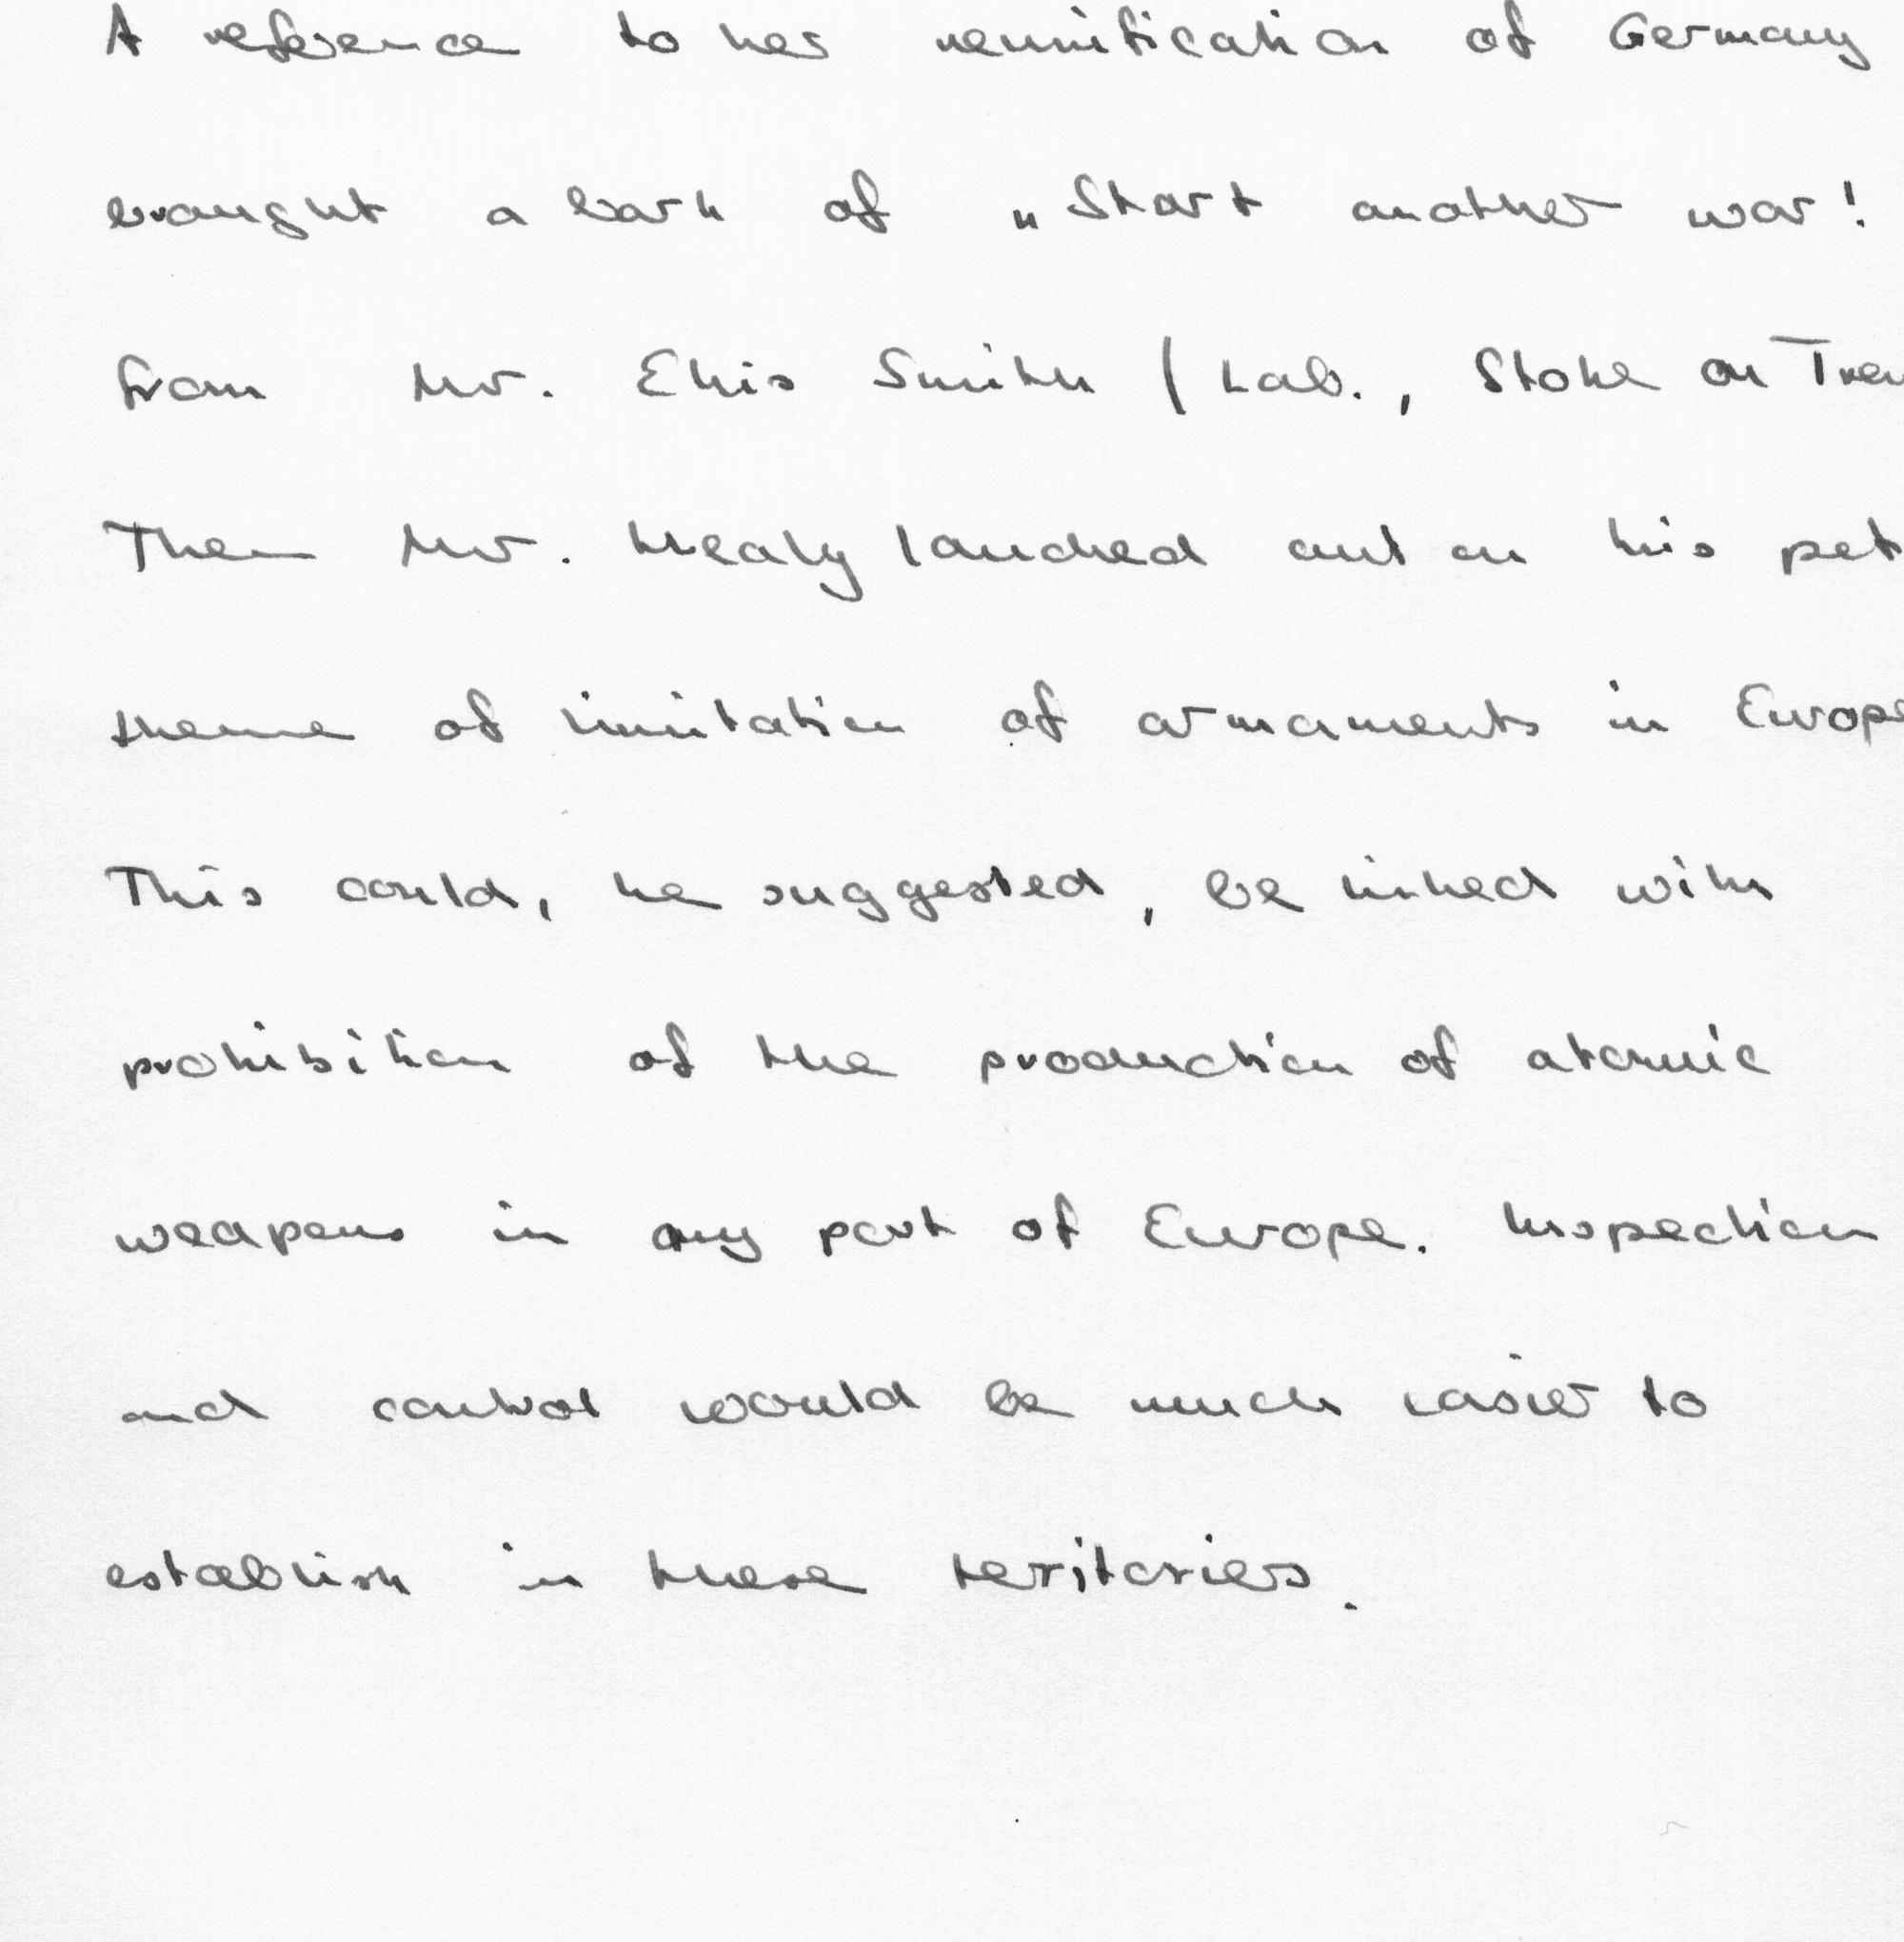 A reference to her reunification of Germany
brought a bark of "Start another war!
from Mr. Ellis Smith (Lab., Stoke on Tren
Then Mr. Healy lauched out on his pet
theme of limitation of armaments in Europe
This could, he suggested, be linked with
prohibition of the production of atomic
weapons in any part of Europe. Inspection
and control would be much easier to
establish in these territories.